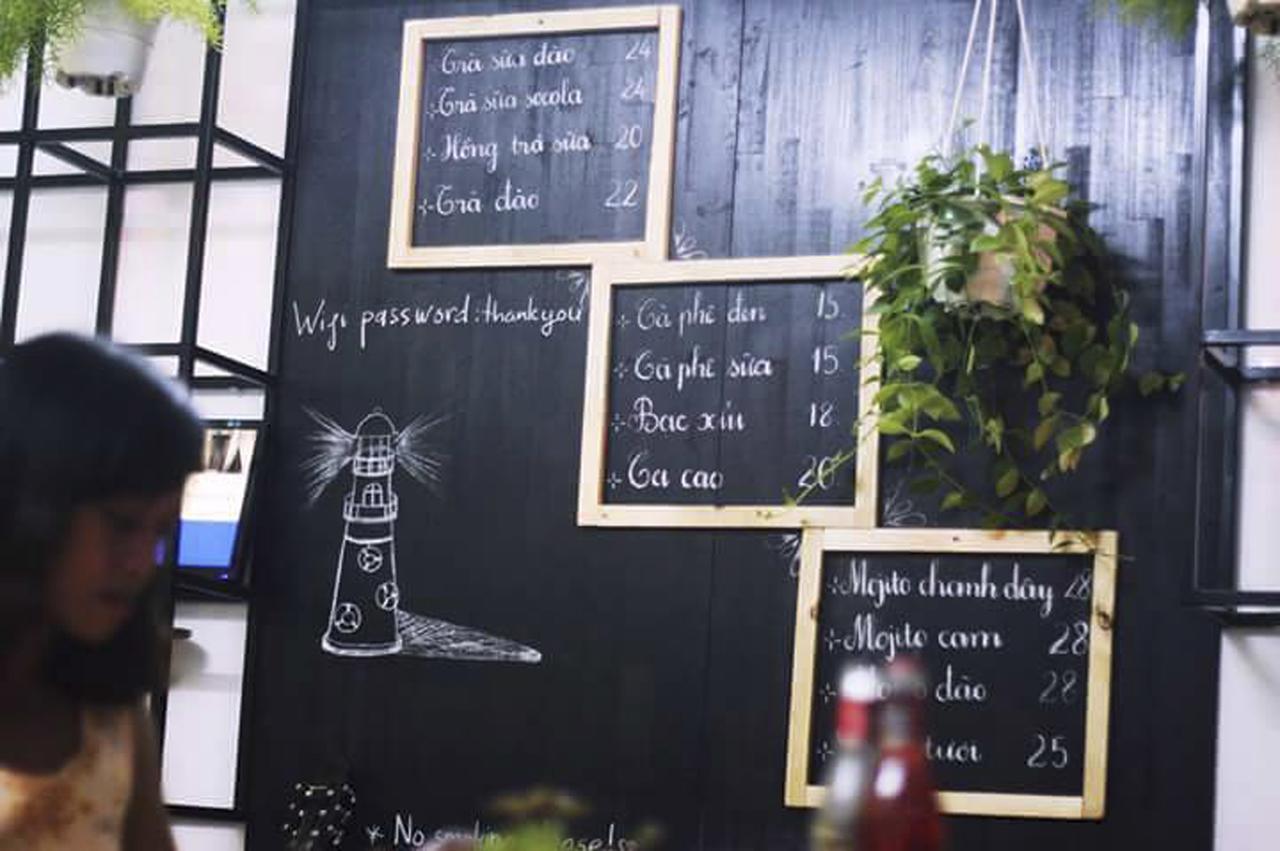 Trà sữa đào 24
Trà sữa socola 24
Hồng trà sữa 20
Trà đào 22
Wifi password: thankyou
Cà phê đen 15
Cà phê sữa 15
Bạc xỉu 18
Ca cao 20
Mojito chanh dây 28
Mojito cam 28
đào 28
tươi 25
* No smoking